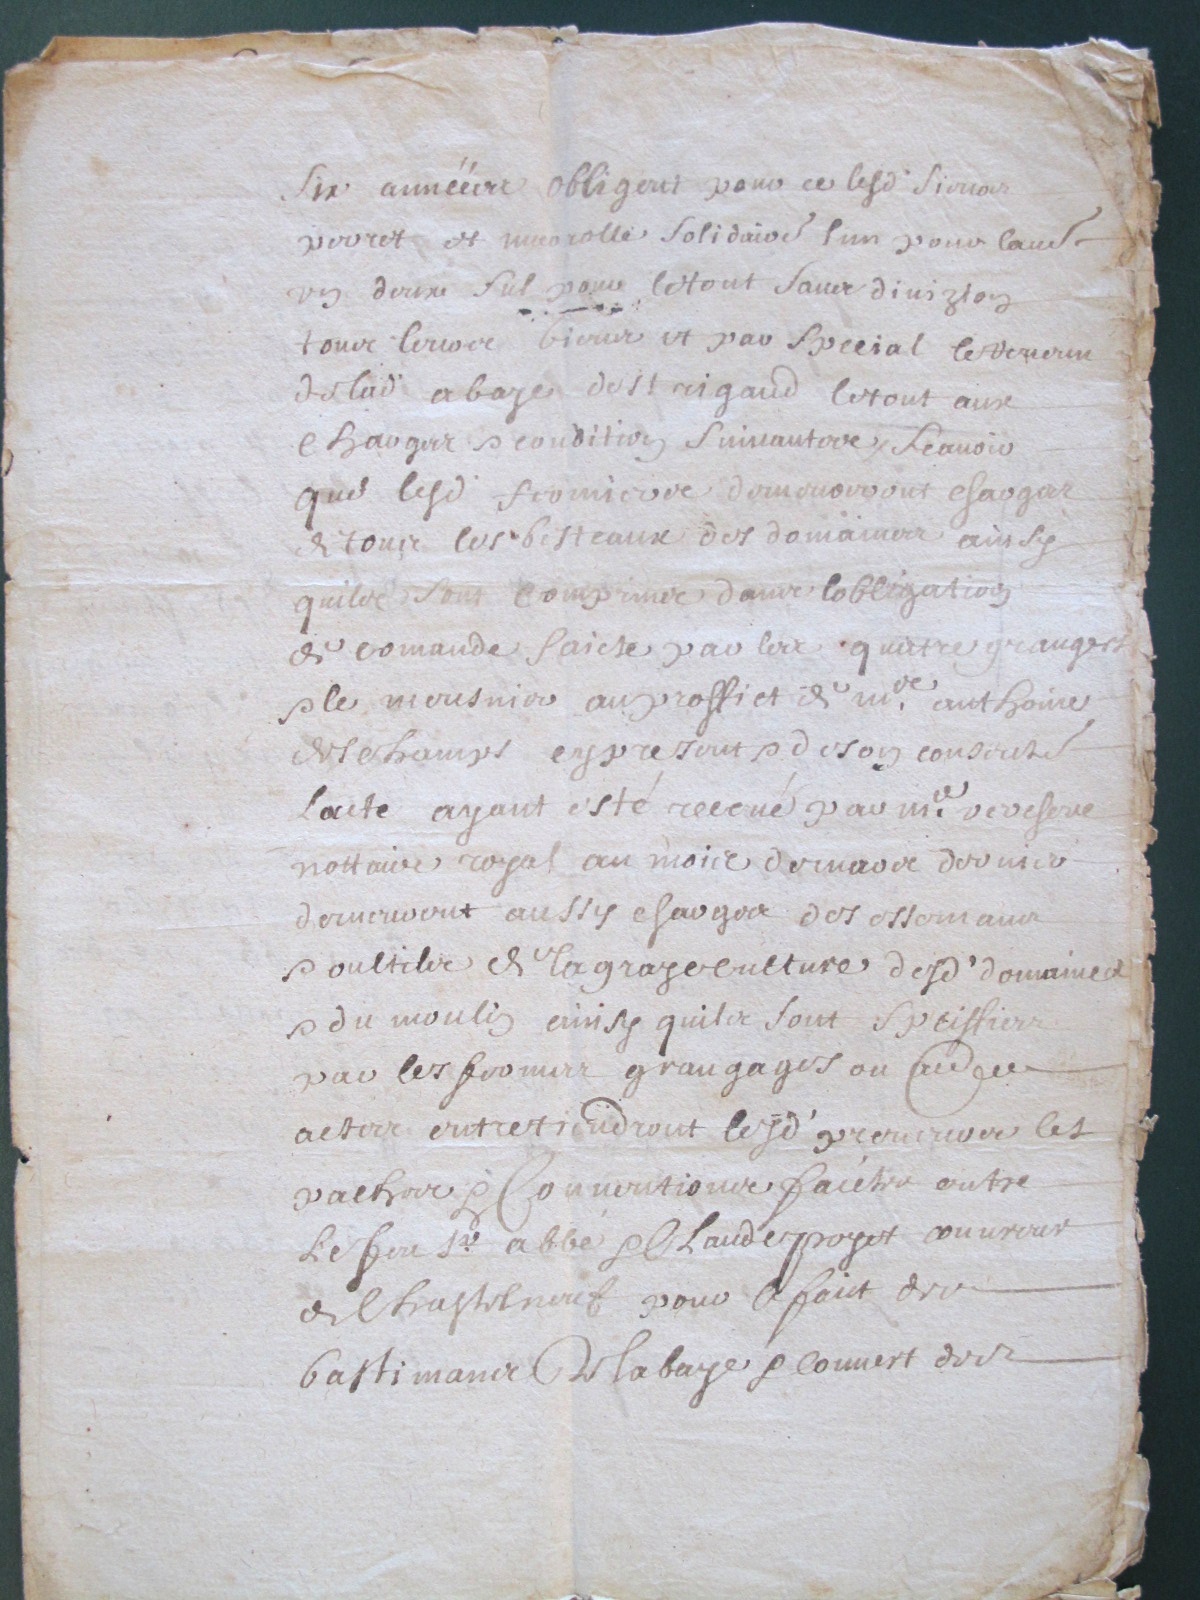 six années obligent pour ce lesd sieurs
perret et marolle solidaire lun pour laut
un deux sul pour letout sans divizion
tous leurs biens et par special le revenu
de lad abaye de st rigaud letout aux
charges & condition suivantes scavoir
que lesd fermiers demeureront charges
de tous les besteaux des domaines ainsy
quils sont comprins dans lobligation
de comande faicte par les quatre grangers
& le meusnier au proffict de mre anthoine
deschamps en present & de son consente
lacte ayant esté receue par me
nottaire royal au mois de mars dernier
demeureront aussy charges des
& oultils de lagrayculture desd domaines
& du moulin ainsy quils sont speciffies
par les fermes grangages ou
actes entretiendront lesd preneurs les
paches & Conventions faictes entre
Le feu sr abbé & Claude proget couvreur
de Chasteneuf pour le faict des
bastimans de labaye & couvert des